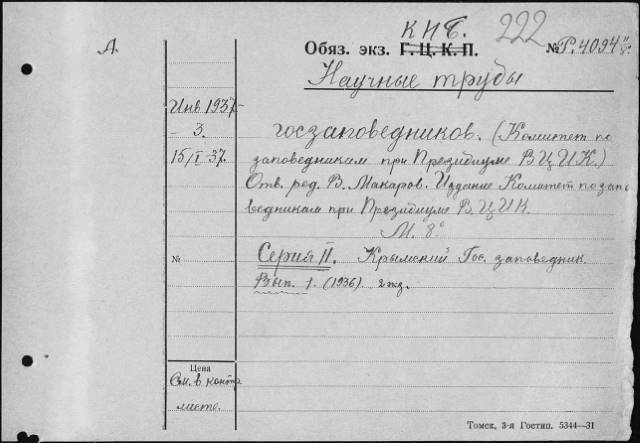 А.
КИБ.
222
Обяз. экз. Г. Ц. К. П.
№Р.4094
Научные труды
Инв 1937-
- 3.
15/I 37.
госзаповедников. (Комитет по
заповедникам при Президиуме ВЦИК.)
Отв. ред. В. Макаров. Издание Комитет по запо
ведникам при Президиуме ВЦИК.
М. 8°
№
Серия II. Крымский Гос. заповедник.
Вып. 1. (1936). 2кз.
Цена
См. в контр
листе.
Томск, 3-я Гостип. 5344—31